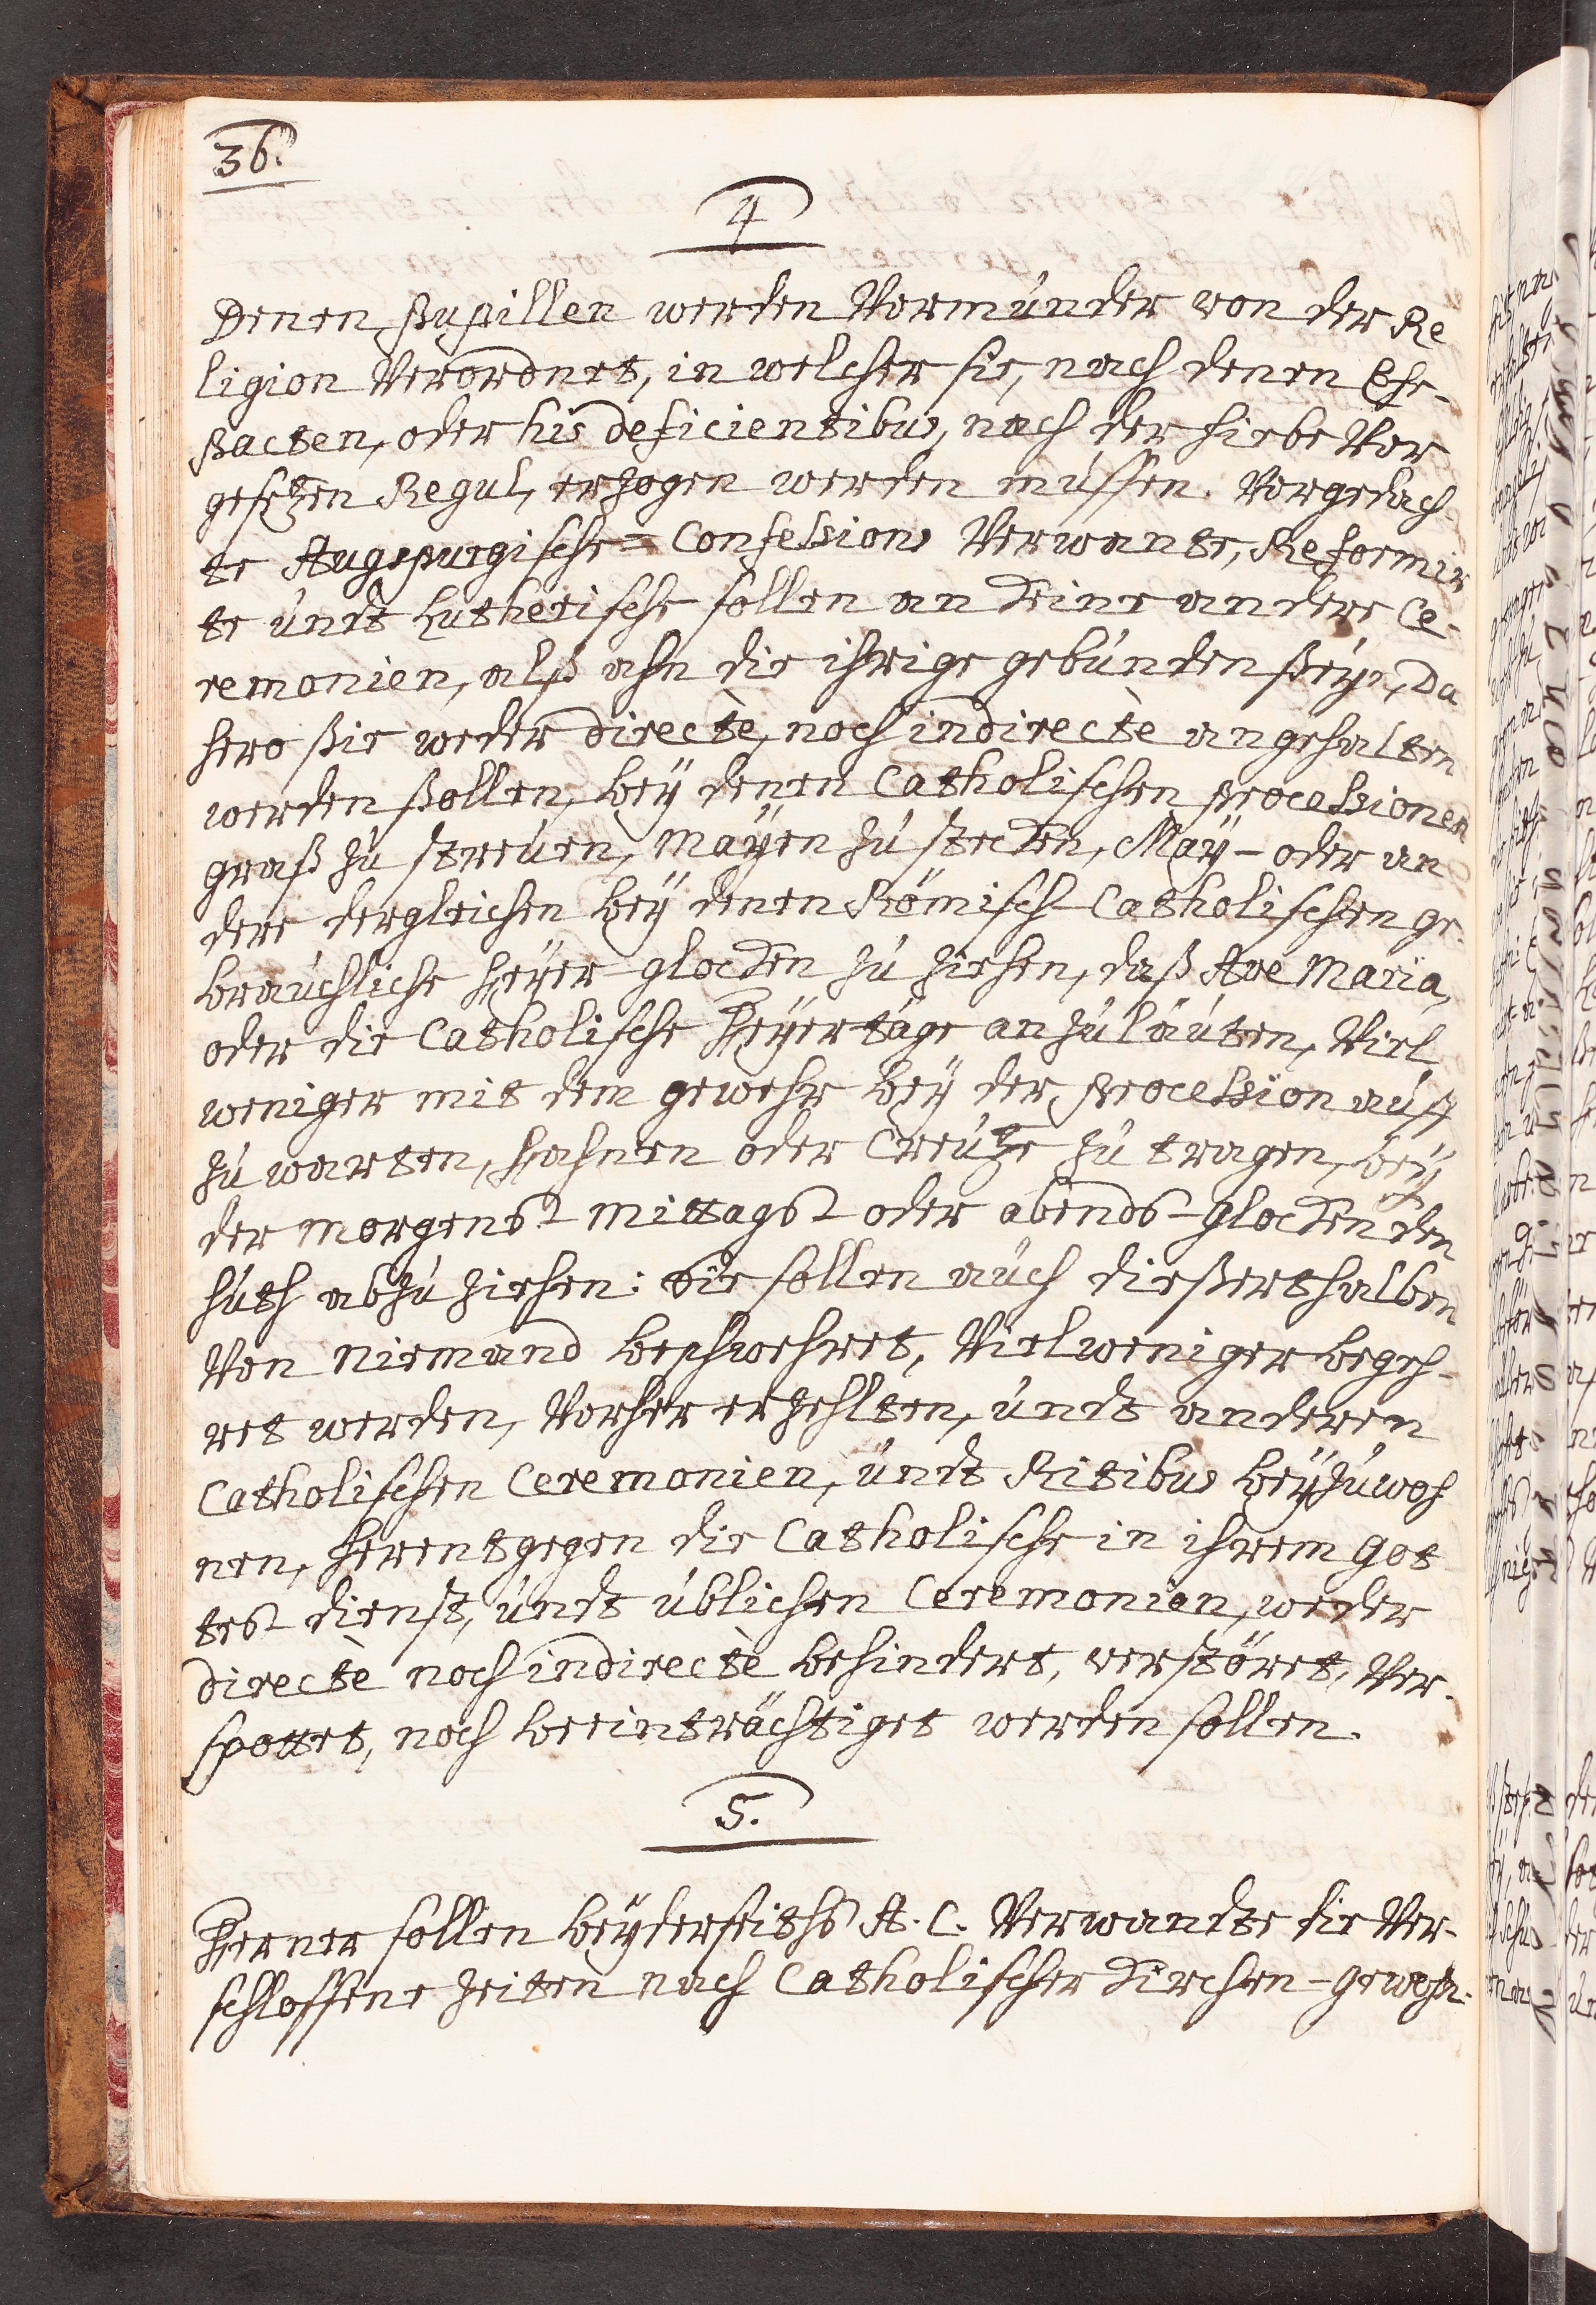 36.
4
Denen Pupillen werden Vormünder von der Re
ligion Verordnet, in welcher sie, nach denen Ehe-
Pacten, oder his deficientibus, nach der hiebe Vor
gesetzen Regul, erzogen werden müssen. Vorgedach
te Augspurgische= Confessions Verwante, Reformir
te undt Lutherische sollen an keine andere Ce-
remonien, alß ahn die ihrige gebunden seyn, Da
hero sie weder directè, noch indirectè angehalten
werden sollen, bey denen Catholischen Processionen
graß zu streuen, Mayen zu stecken, May- oder an
dere dergleichen bey denen Römisch-Catholischen ge-
bräuchliche Feyer-glocken zu ziehen, daß Ave Maria,
oder die Catholische Feyertäge anzuläuten, Viel
weniger mit dem gewehr bey der Procession auff
zu warten, Fahnen oder Creütze zu tragen, bey
der Morgens- Mittags- oder abends-Glocken den
huth abzuziehen: Sie sollen auch dießerthalben
Von Niemand beschwehret, Vielweniger begeh-
ret werden, Vorher erzehlten, undt anderen
Catholischen Ceremonien, undt Ritibus beyzuwoh
nen, Herentgegen die Catholische in ihrem Got
tes- dienst, undt üblichen Ceremonien, weder
directè noch indirectè behindert, verstöret, Ver-
spottet, noch beeinträchtiget werden sollen.
5.
Ferner sollen beyderseiths A. C. Verwandte die Ver-
schlossene Zeiten nach Catholischer Kirchen-gewohn-